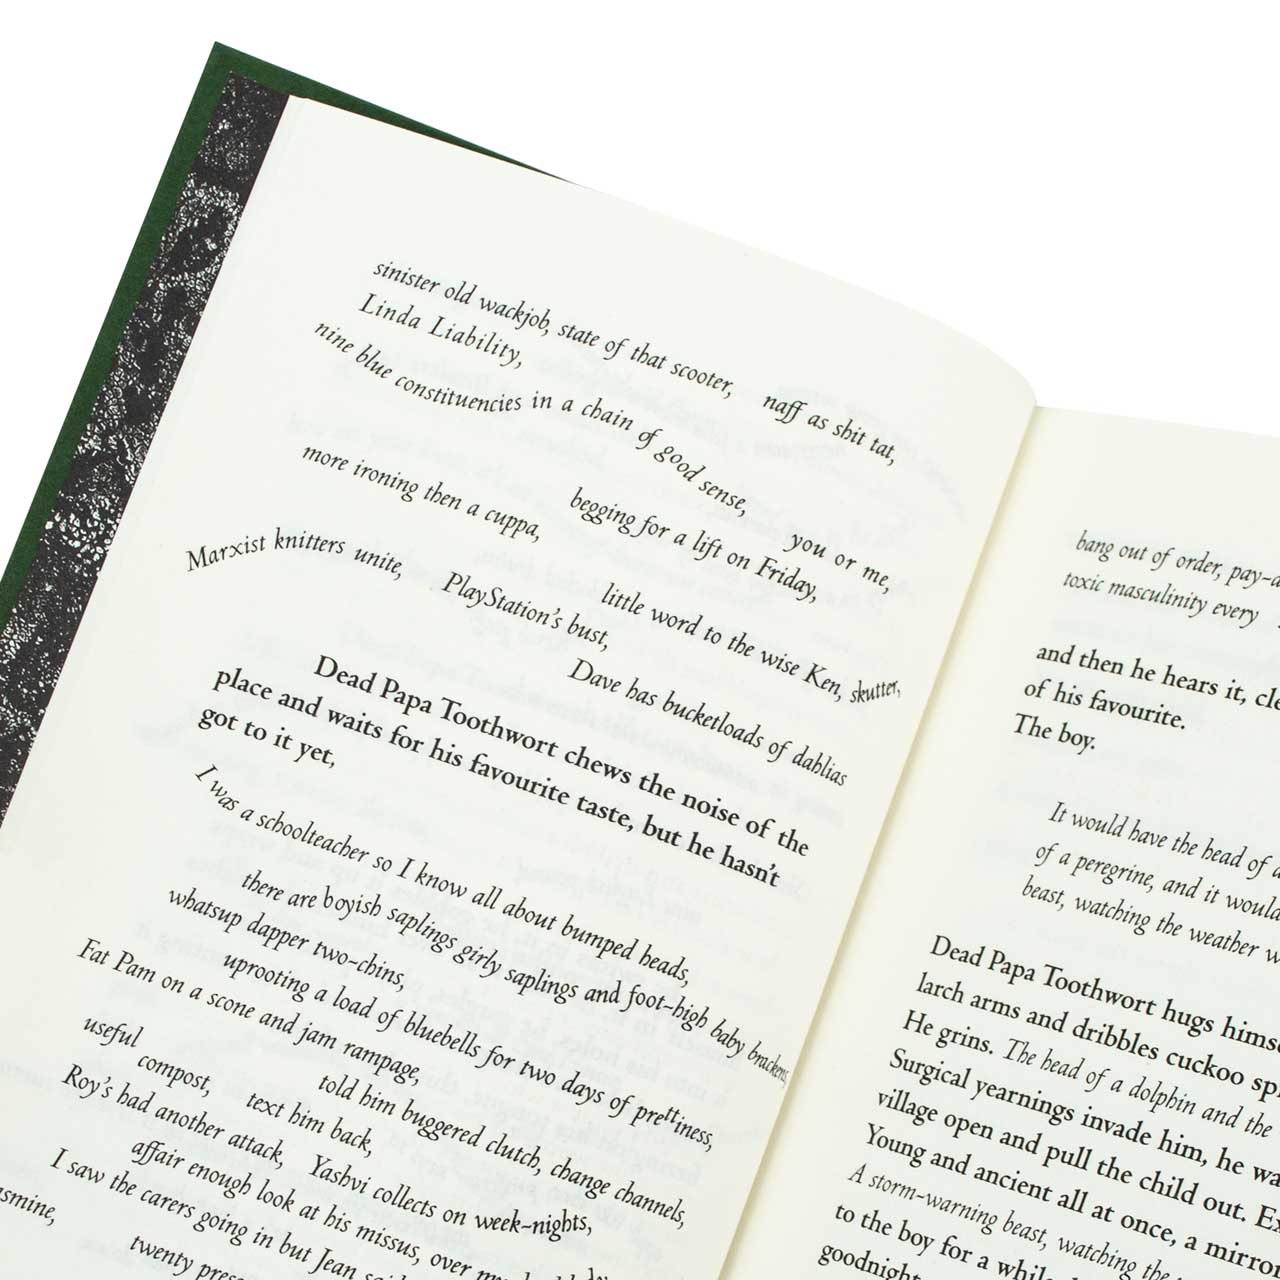 sinister old wackjob, state of that scooter,
naff as shit tat,
Linda Liability,
nine blue constituencies in a chain of good sense,
you or me,
more ironing then a cuppa,
begging for a lift on Friday,
Marxist knitters unite,
little word to the wise Ken, skutter,
PlayStation's bust,
Dave has bucketloads of dahlias
Dead Papa Toothwort chews the noise of the
place and waits for his favourite taste, but he hasn't
got to it yet,
I was a schoolteacher so I know all about bumped heads,
there are boyish saplings girly saplings and foot-high baby brackens,
whatsup dapper two-chins,
uprooting a load of bluebells for two days of prettiness,
Fat Pam on a scone and jam rampage,
told him buggered clutch, change channels,
useful compost,
text him back,
Roy's had another attack,
Yashvi collects on week-nights,
affair enough look at his missus, over
I saw the carers going in but Jean said
twenty
bang out of order,
toxic masculinity every
and then he hears it,
of his favourite.
The boy.
It would have the head of a
of a peregrine, and it would
beast, watching the weather
Dead Papa Toothwort hugs
larch arms and dribbles cuckoo
He grins. The head of a dolphin and the
Surgical yearnings invade him, he
village open and pull the child out.
Young and ancient all at once, a
A storm-warning beast, watching the
to the boy for a while
goodnight